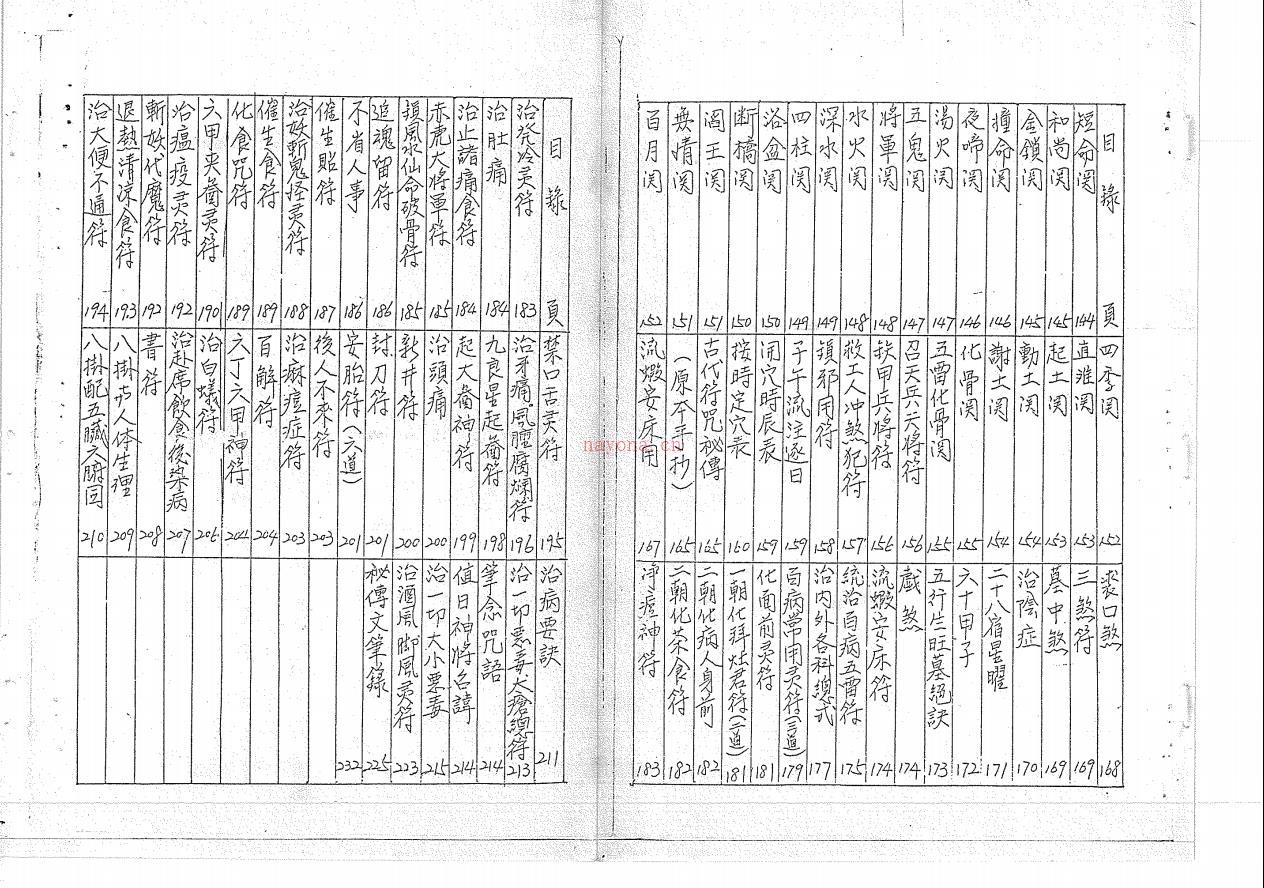 目錄 頁
短命関 144
和尚関 145
金鎖関 145
撞命関 146
夜啼関 146
湯火関 147
五鬼関 147
將軍関 148
水火関 148
深水関 149
四柱関 149
浴盆関 150
断橋関 150
阎王関 151
無情関 151
百日関 152
四季関 152
直难関 153
起土関 153
動土関 154
謝土関 154
化骨関 155
五雷化骨関 155
召天兵天將符 156
鉄甲兵將符 156
救工人冲煞犯符 157
鎮邪用符 158
子午流注逐日 159
開穴時辰表 159
按時定穴表 160
古代符咒祕傳 165
(原本手抄) 165
流煅安床用 167
喪口煞 168
三煞符 169
墓中煞 169
治陰症 170
二十八宿星曜 171
六十甲子 172
五行生旺墓絕訣 173
戲煞 174
流蝦安床符 174
統治百病五雷符 175
治内外各科總式 177
百病常用灵符(三道) 179
化面前灵符 181
一朝化拜灶君符(二道) 181
二朝化病人身前 182
三朝化茶食符 182
净瘟神符 183
目錄 頁
治發冷灵符 183
治肚痛 184
治止諸痛食符 184
赤虎大將軍符 185
鎮風水仙命破骨符 185
追魂留符 186
不省人事 186
催生貼符 187
治妖斬鬼怪灵符 188
催生食符 189
化食咒符 189
六甲夾番灵符 190
治瘟疫灵符 192
斬妖代魔符 192
退熱清凉食符 193
治大便不通符 194
禁口舌灵符 195
治牙痛。風膻腐爛符 196
九良星起番符 198
起大番神符 199
治頭痛 200
新井符 200
封刀符 201
安胎符(六道) 201
後人不來符 203
治麻痘症符 203
百解符 204
六丁六甲神符 204
治白蟻符 206
治赴席飲食後染病 207
書符 208
八掛与人体生理 209
八掛配五臟六腑図 210
治病要訣 211
治一切惡毒大瘡總符 213
筆念咒語 214
值日神將名諱 214
治一切大小惡毒 215
治酒風脚風灵符 223
祕傳文筆錄 225
232
nayona.cn